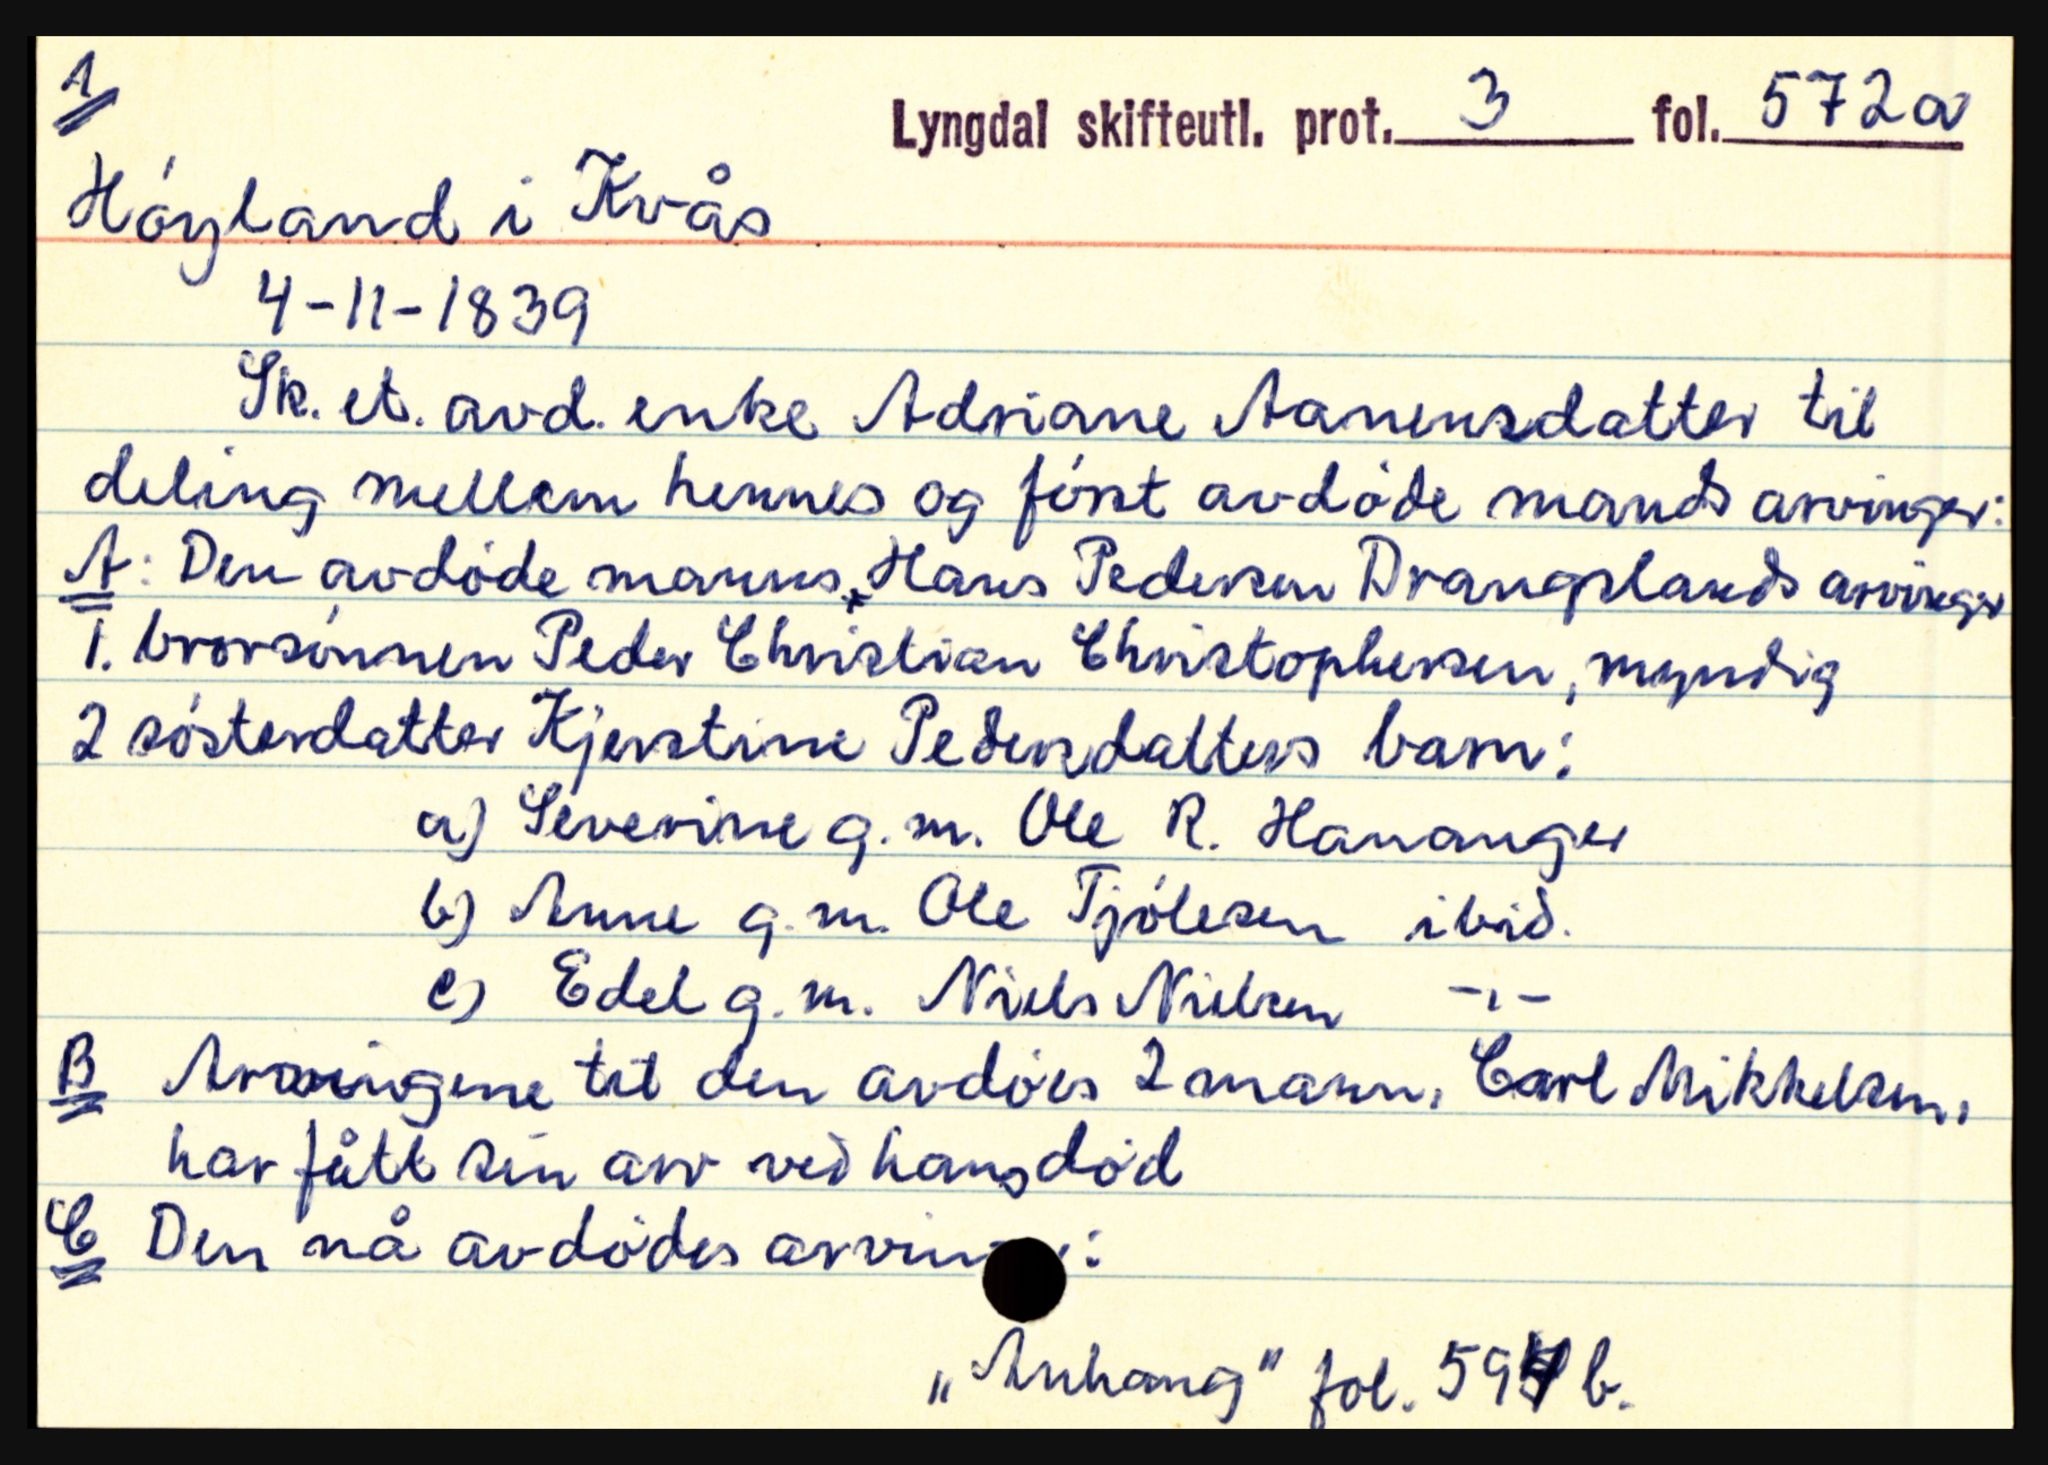 A
Lyngdal skifteutl. prot. 3 fol. 572a
Höyland i Kvås
4-11-1839
Sk. et. avd. enke Adriane Aanensdatter til
deling mellem hennes og först avdöde mands arvinger:
A: Den avdöde manns, Hans Pedersen Drangslands arvinger
1. brorsönnen Peder Christian Christophersen, myndig
2 sösterdatter Kjerstine Pedersdatters barn:
a) Severine g.m. Ole R. Hananger
b) Anne g.m. Ole Tjölesen ibid.
c) Edel g.m. Niels Nielsen -"-
B Arvingene til den avdöes 2 mann, Carl Mikkelsen,
har fått sin arv ved hans död
C Den nå avdödes :
„Anhang" fol. b.